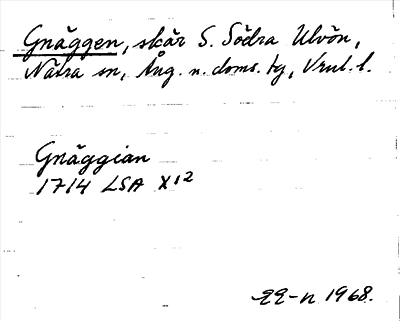 Gnäggen, skär S. Södra Ulvön,
Nätra sn, Ång. n. doms. tg, Vnl. l.
Gnäggian
1714 LSA X12
1968.